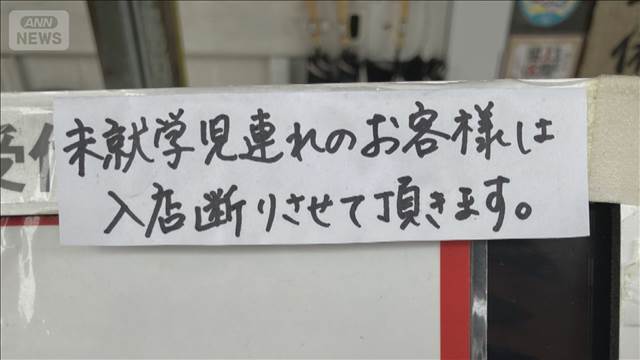 ANN
NEWS
未就学児連れのお客様は
入店断りさせて頂きます。
受付